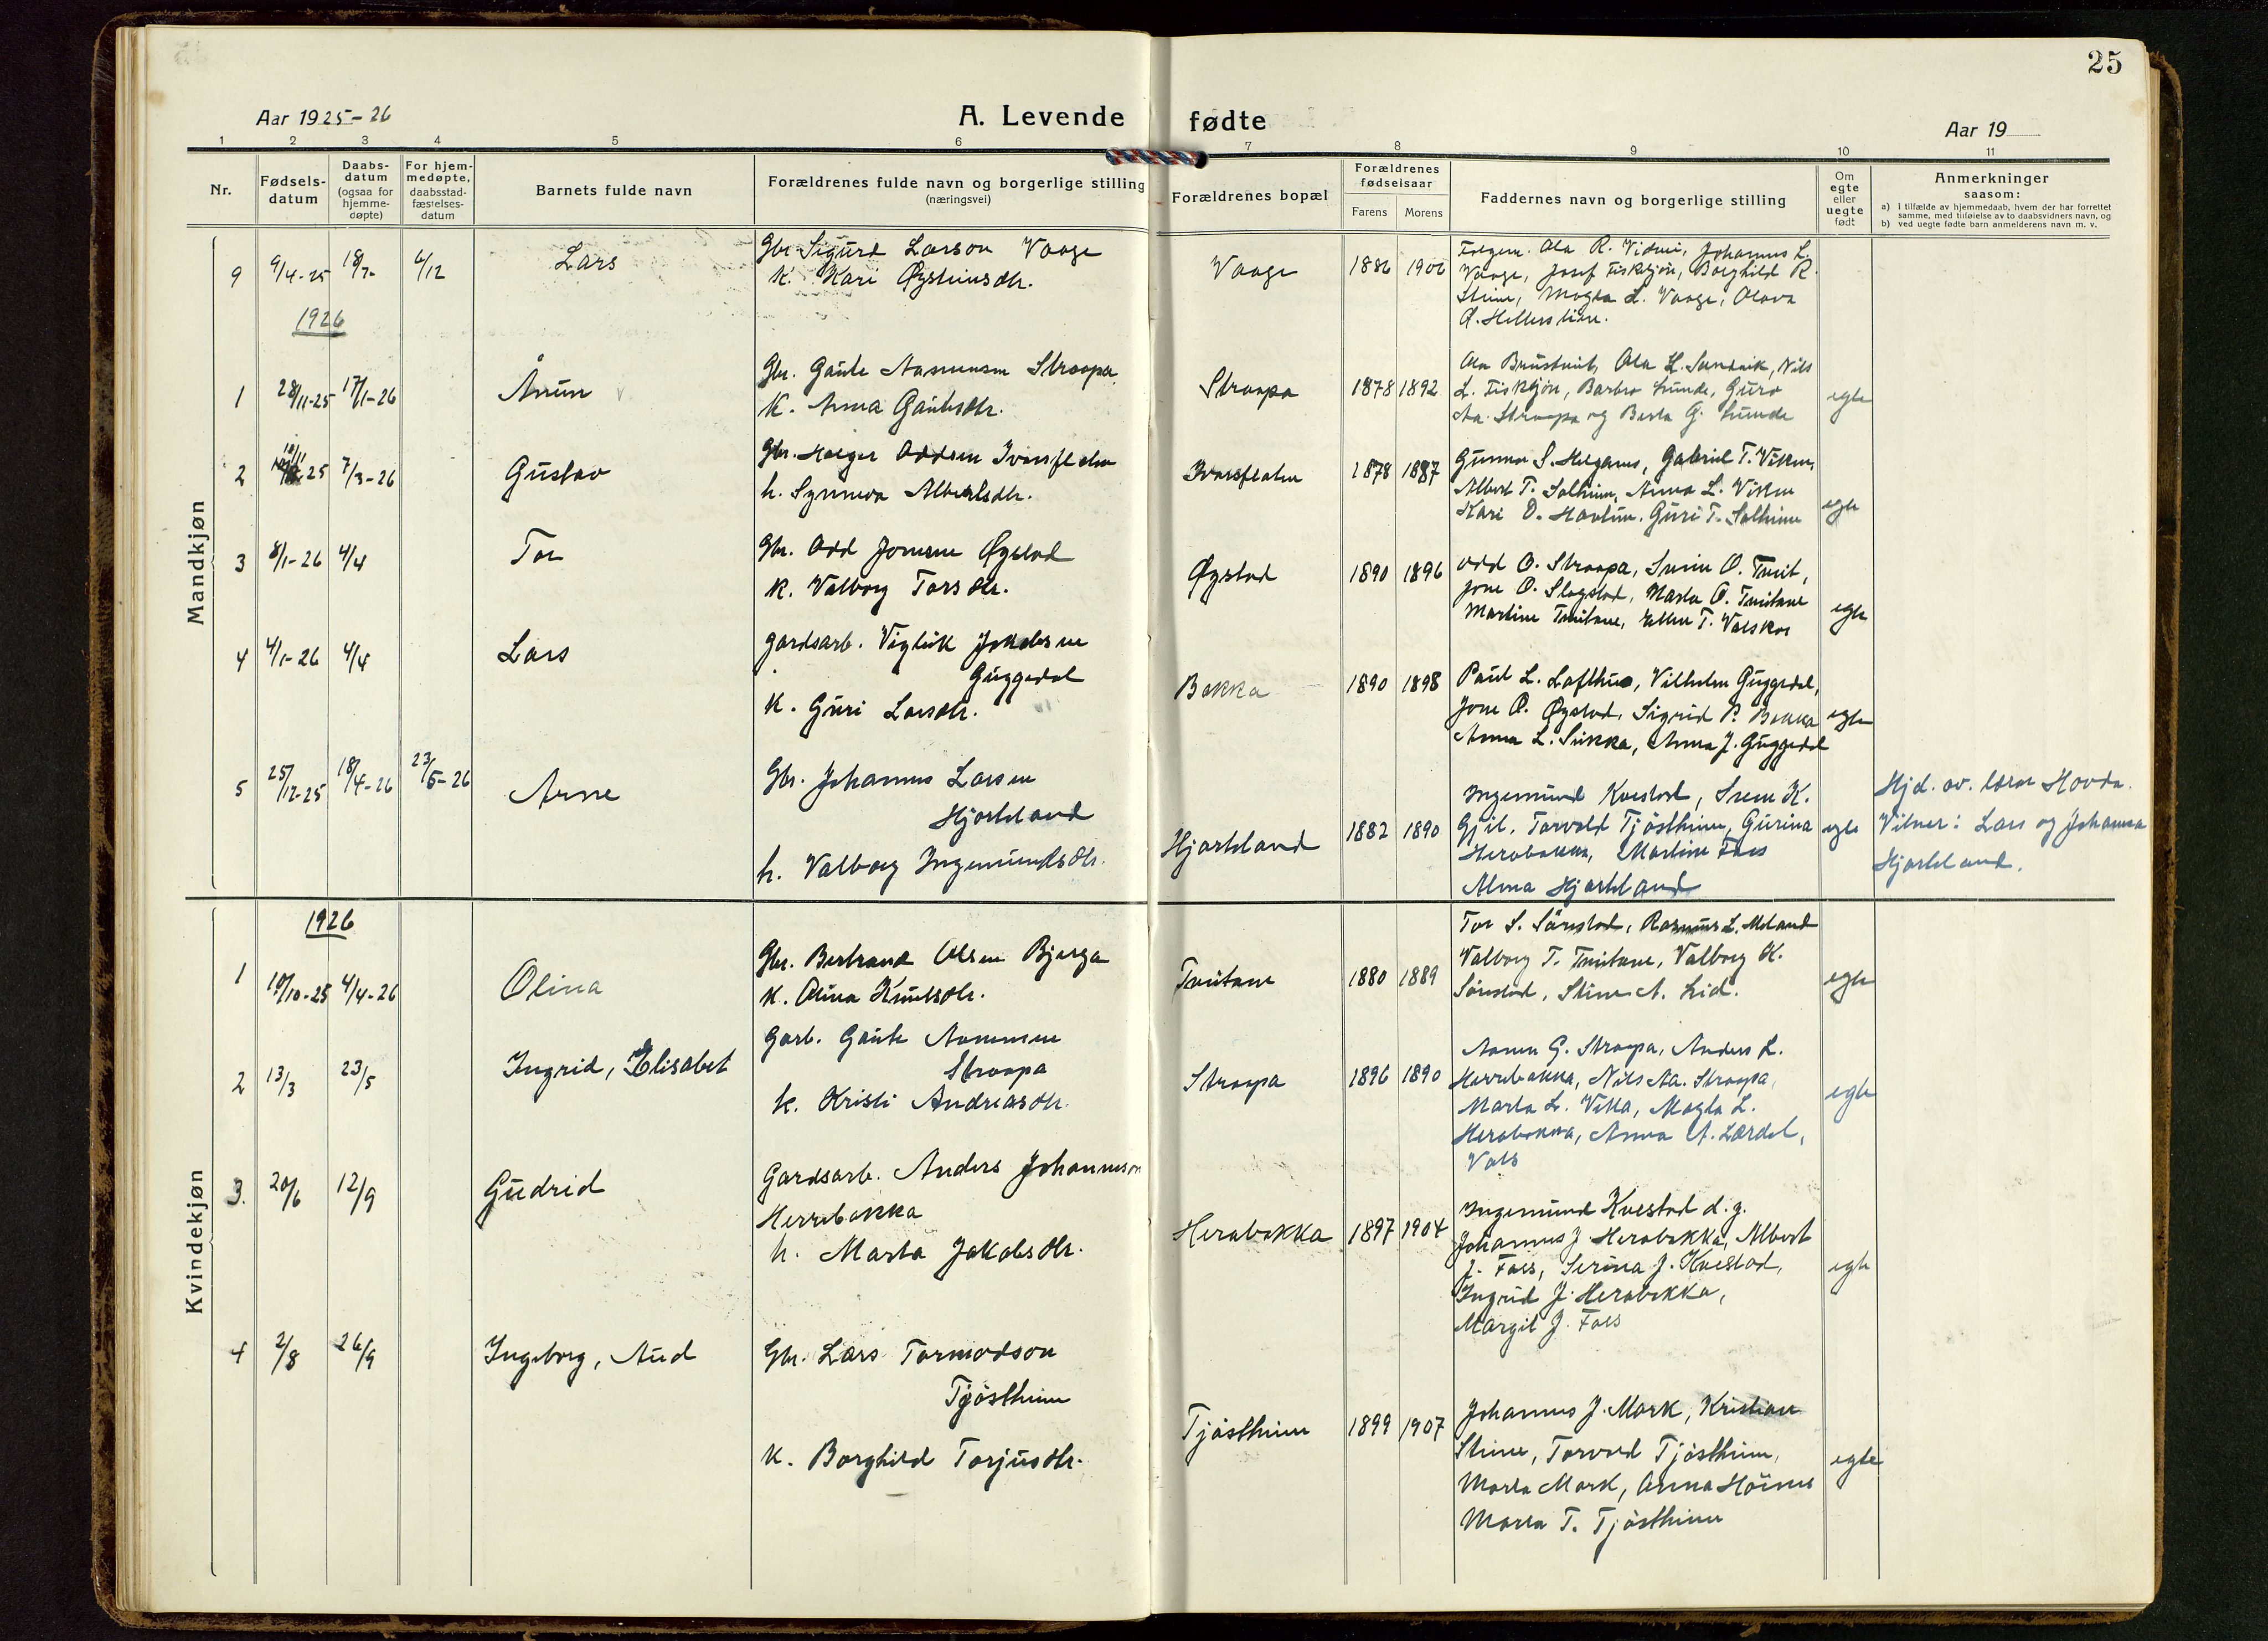 25
Aar 1925-26
A. Levende fødte
Aar 19
1 2 3 4 5 6 7 8 9 10 11
Nr.
Fødsels-datum
Daabs-datum (ogsaa for hjemme-døpte)
For hjem-medøpte, daabsstad-fæstelses-datum
Barnets fulde navn
Forældrenes fulde navn og borgerlige stilling
(næringsvei)
Forældrenes bopæl
Forældrenes fødselsaar
Farens Morens
Faddernes navn og borgerlige stilling
Om egte eller uegte født
Anmerkninger
saasom:
a) i tilfælde av hjemmedaab, hvem der har forrettet samme, med tilføielse av to daabsvidners navn, og
b) ved uegte fødte barn anmelderens navn m. v.
Mandkjøn
9 9/4-25 18/7- 6/12 Lars
Gbr. Sigurd Larson Vaage
K. Kari Øysteinsdtr.
Vaage 1886 1906
Ola R. Vidvei, Johannes L.
Vaage, Josef Fiskekjøn, Borghild R.
Stime, Magla L. Vaage, Olava
1926
1 28/11-25 17/1-26 Ånun
Gbr. Gaute Aamunsen Straapa
K. Anna Gautesdtr.
Straapa 1878 1892
L. Fiskekjøn, Barbro Lunde, Guro
Aa. Straapa og Berta G. Lunde
egte
2 10/11 25 7/3-26 Gustav
Gbr. Holger Oddsen Ivarsflaten
h. Synneva Albertsdtr.
Ivarsflaten 1878 1887
Gunnar S. Helganes, Gabriel T. Viken,
Albert T. Solheim, Anna L. Viken
Kari O. Havlin, Guri T. Solheim
egte
3 8/1-26 4/4 Tor
Gbr. Odd Jonesen Øystad
K. Valborg Torsdtr.
Øystad 1890 1896
Odd O. Straapa, Svein O. Tveit,
Jone O. Slogstad, Marta O. Tveitane
Martine Tveitane, Ellen T. Valskor
egte
4 4/1-26 4/4 Lars
gardsarb. Vigleik Jakobsen
Guggedal
K. Guri Larsdtr.
Bakka 1890 1898
Paul L. Lofthus, Vilhelm Guggedal,
Jone O. Øystad, Sigrid P. Bakka
Anna L. Sukka, Anna J. Guggedal
egte
5 25/12-25 18/4-26 23/5-26 Arne
Gbr. Johannes Larsen
Hjorteland
h. Valborg Ingemundsdtr.
Hjorteland 1882 1890
Ingemund Kvestad, Svein K.
Gjil, Torvald Tjøstheim, Gurina
Herabakka, Martine Faes
Alma Hjorteland
egte
Hjd. av. lærar Hovda.
Vitner: Lars og Johanna
Hjorteland.
Kvindekjøn
1926
1 19/10-25 4/4-26 Olina
Gbr. Bertrand Olsen Bjerga
K. Olina Knutsdtr.
Tveitane 1880 1889
Tor S. Sørestad, Rasmus L. Meland
Valborg T. Tveitane, Valborg K.
Sørestad, Stine A. Lid.
egte
2 13/3 23/5 Ingrid, Elisabet
Garb. Gaute Aamunsen
Straapa
k. Kristi Andreasdtr.
Straapa 1896 1890
Aamun G. Straapa, Anders L.
Herrebakka, Nils Aa. Straapa,
Marta L. Vika, Magla L.
Herabakka, Anna A. Lærdal,
Vats
egte
3. 20/6 12/9 Gudrid
Gardsarb. Anders Johanneson
Herrebakka
h. Marta Jakobsdtr.
Herabakka 1897 1904
Ingemund Kvestad d. y.
Johannes J. Herabakka, Albert
J. Faes, Serina J. Kvestad,
Ingrid J. Herabakka,
Margit J. Faes
egte
4 2/8 26/9 Ingeborg, Aud
Gbr. Lars Tormodson
Tjøstheim
K. Borghild Torjusdtr.
Tjøstheim 1899 1907
Johannes J. Mork, Kristian
Stime, Torvald Tjøstheim,
Marta Mork, Anna Høines
Marta T. Tjøstheim
egte